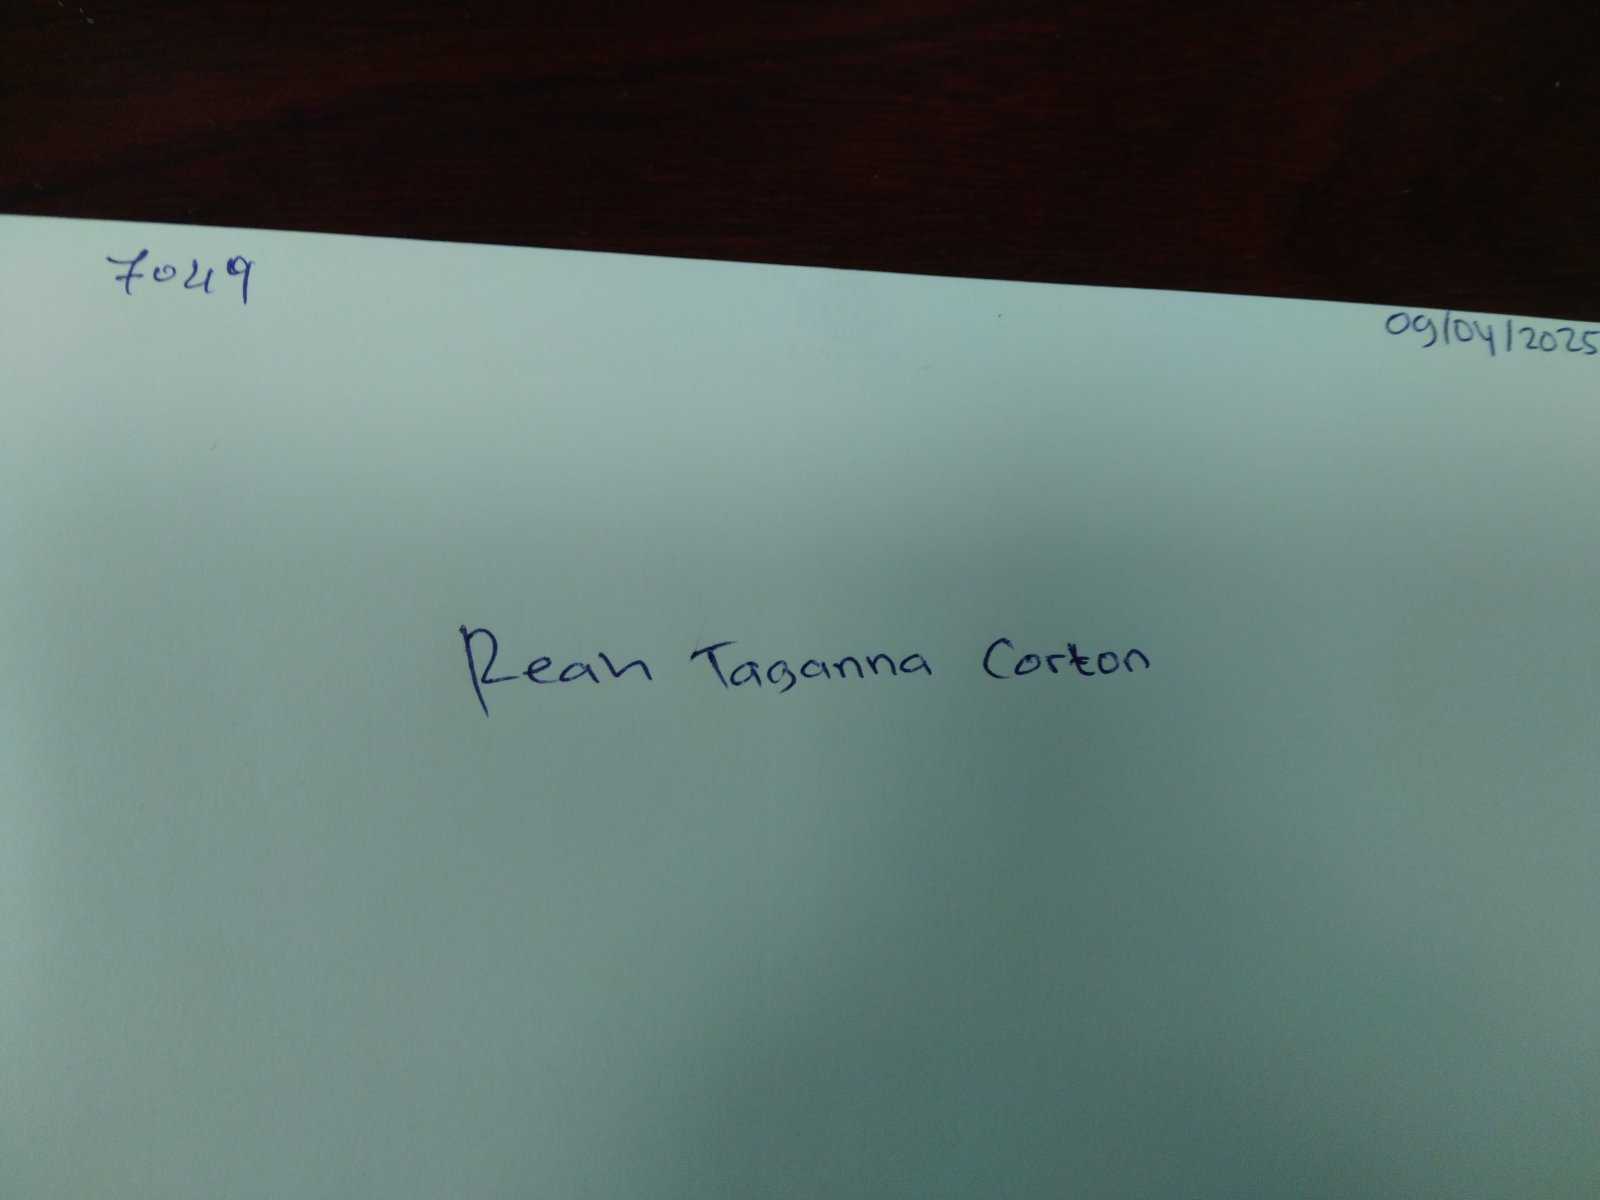 7049
09/04/2025
Reah Taganna Corton